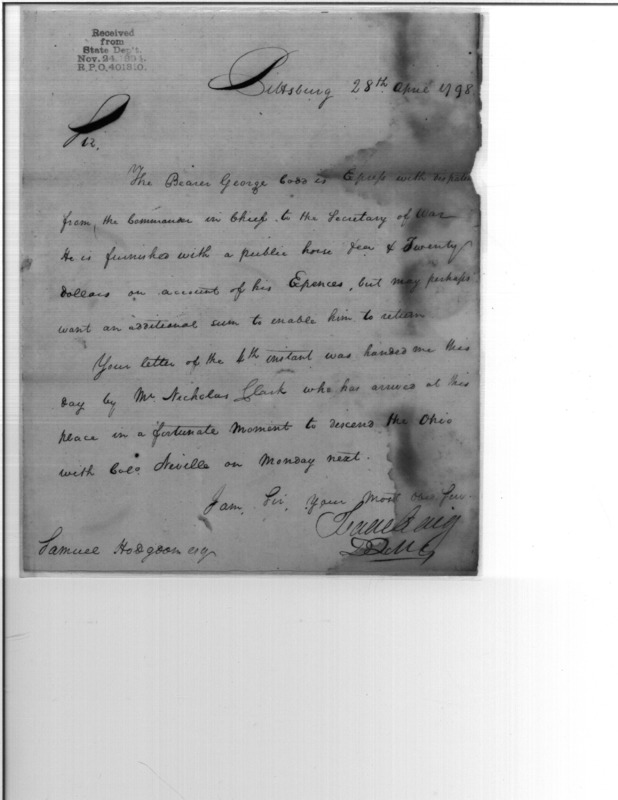 Received
from
State Dep't.
Nov. 24. 1894.
R.P.O. 401810.
Pittsburg 28th April 1798
Sir.
The Bearer George Codd is Express with dispatches
from, the Commander in Chief to the Secretary of War
He is furnished with a public horse & Twenty
Dollars on account of his Expences, but may perhaps
want an additional sum to enable him to return
Your letter of the 6th instant was handed me this
day by Mr Nicholas Clark who has arrived at this
place in a fortunate Moment to descend the Ohio
with Colo. Neville on Monday next.
I am, Sir, Your Most Obt. Ser.
Isaac Craig
DQMG
Samuel Hodgdon esq